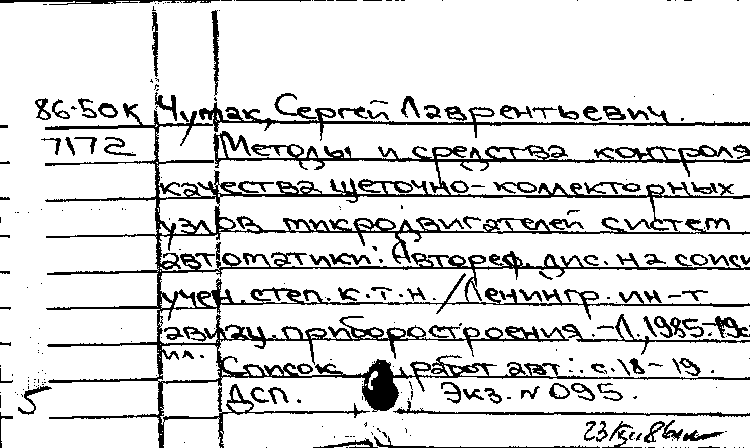 86-50К Чумак, Сергей Лаврентьевич.
7172 Методы и средства контроля
качества щеточно-коллекторных
узлов микродвигателей систем
автоматики: Автореф. дис. на соиск
учен. степ. к.т.н. / Ленингр. ин-т
авиац. приборостроения. - Л., 1985. - 19с
ил.
Список работ авт.: с. 18-19.
5 ДСП. Экз. № 095.